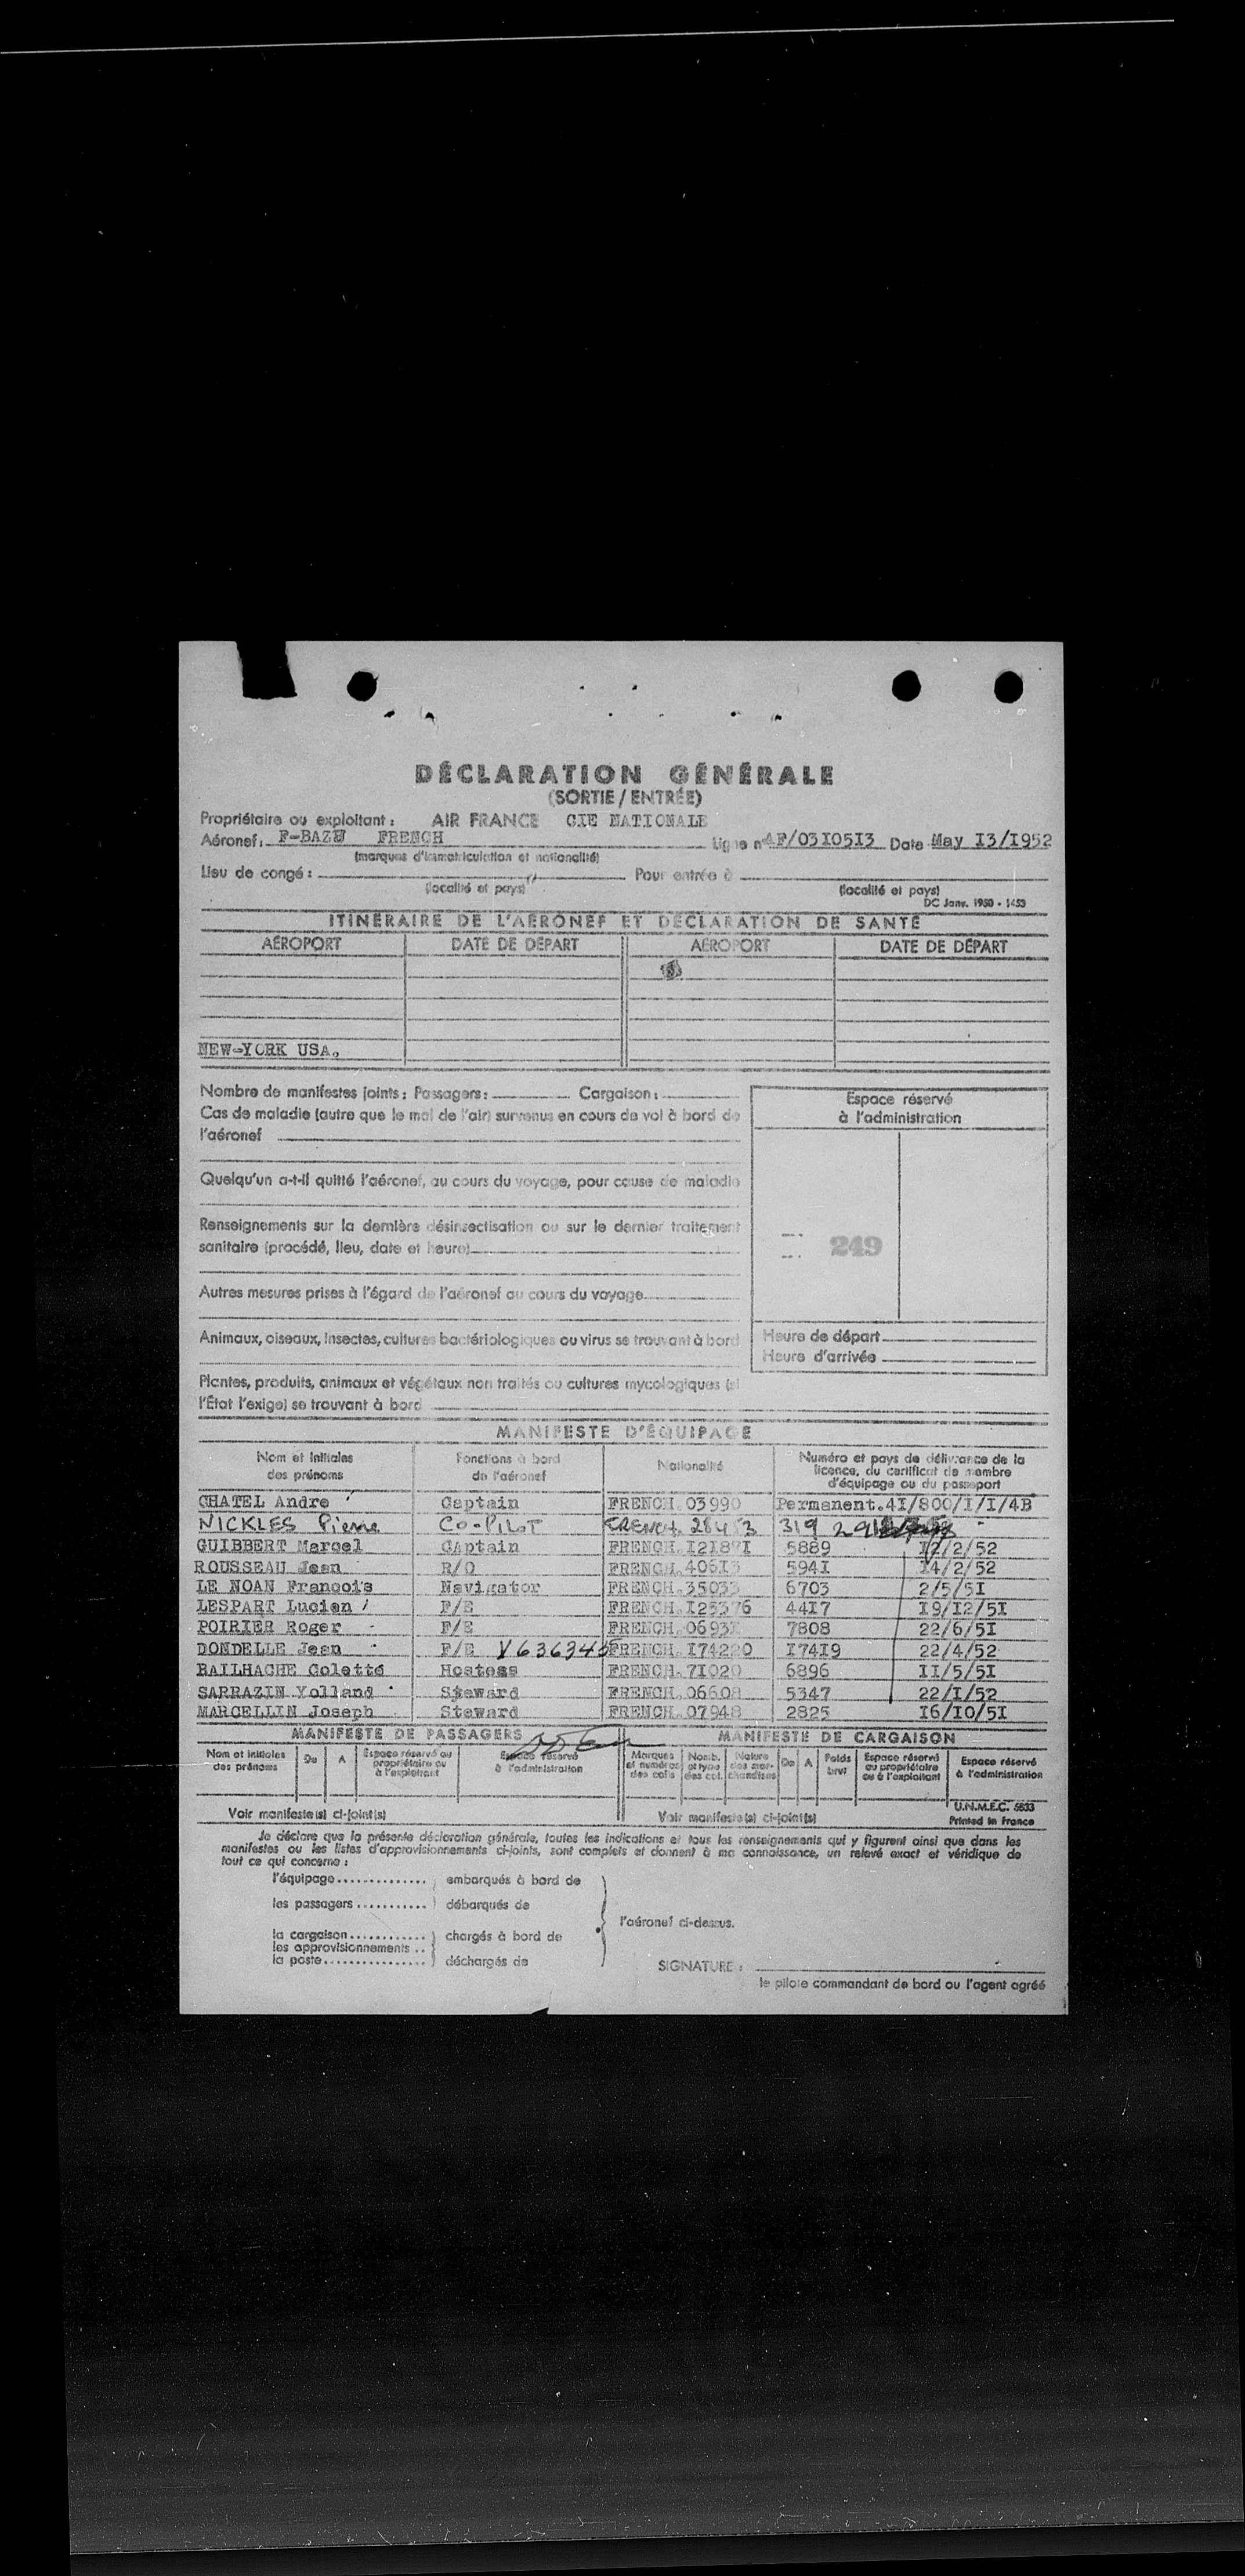 DÉCLARATION GÉNÉRALE
(SORTIE / ENTRÉE)
Propriétaire ou exploitant : AIR FRANCE CIE NATIONALE
Aéronef : FRENCH Ligne n° AF/03I05I3 Date May I3/I952
(marques d'immatriculation et nationalité)
Lieu de congé : Pour entrée à
(localité et pays) (localité et pays)
DC Janv. 1950 - 1453
ITINÉRAIRE DE L'AÉRONEF ET DÉCLARATION DE SANTÉ
AÉROPORT DATE DE DÉPART AÉROPORT DATE DE DÉPART
NEW-YORK USA.
Nombre de manifestes joints : Passagers : Cargaison :
Cas de maladie (autre que le mal de l'air) survenus en cours de vol à bord de
l'aéronef
Quelqu'un a-t-il quitté l'aéronef, au cours du voyage, pour cause de maladie
Renseignements sur la dernière désinsectisation ou sur le dernier traitement
sanitaire (procédé, lieu, date et heure)
Autres mesures prises à l'égard de l'aéronef au cours du voyage
Animaux, oiseaux, insectes, cultures bactériologiques ou virus se trouvant à bord
Plantes, produits, animaux et végétaux non traités ou cultures mycologiques (si
l'État l'exige) se trouvant à bord
Espace réservé
à l'administration
249
Heure de départ
Heure d'arrivée
MANIFESTE D'ÉQUIPAGE
Nom et initiales
des prénoms
Fonctions à bord
de l'aéronef
Nationalité
Numéro et pays de délivrance de la
licence, du certificat de membre
d'équipage ou du passeport
CHATEL Andre Captain FRENCH. 03990 Permanent.4I/800/I/I/4B
NICKLES Pierre CO-PILOT FRENCH. 319
GUIBBERT Marcel CAptain FRENCH. I2I87I 5889 I2/2/52
ROUSSEAU Jean R/O FRENCH. 406I3 594I I4/2/52
LE NOAN Francois Navigator FRENCH. 35033 6703 2/5/5I
LESPART Lucien F/E FRENCH. I25376 44I7 I9/I2/5I
POIRIER Roger F/E FRENCH. 7808 22/6/5I
DONDELLE Jean F/E V636345 FRENCH. I74220 I74I9 22/4/52
BAILHACHE Colette Hostess FRENCH. 71020 6896 II/5/5I
SARRAZIN Yolland Steward FRENCH. 06608 5347 22/I/52
MARCELLIN Joseph Steward FRENCH. 07948 2825 I6/IO/5I
MANIFESTE DE PASSAGERS MANIFESTE DE CARGAISON
Nom et initiales
des prénoms
De A
Espace réservé au
propriétaire ou
à l'exploitant
Espace réservé
à l'administration
Marques
et numéros
des colis
Nomb.
et type
des col.
Nature
des mar-
chandises
De A
Poids
brut
Espace réservé
au propriétaire
ou à l'exploitant
Espace réservé
à l'administration
Voir manifeste(s) ci-joint(s) Voir manifeste(s) ci-joint(s)
U.N.M.E.C. 5833
Printed in France
Je déclare que la présente déclaration générale, toutes les indications et tous les renseignements qui y figurent ainsi que dans les
manifestes ou les listes d'approvisionnements ci-joints, sont complets et donnent à ma connaissance, un relevé exact et véridique de
tout ce qui concerne :
l'équipage embarqués à bord de
les passagers débarqués de
l'aéronef ci-dessus.
la cargaison chargés à bord de
les approvisionnements
la poste déchargés de
SIGNATURE :
le pilote commandant de bord ou l'agent agréé